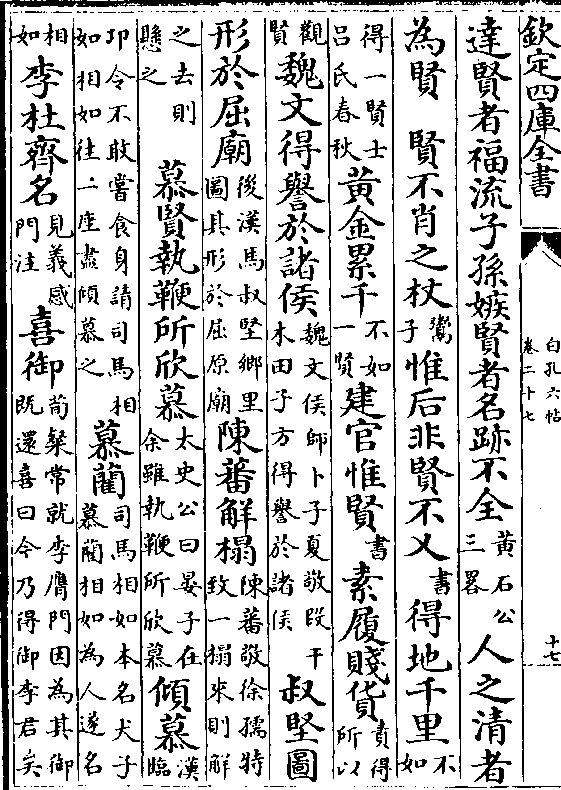 欽定四庫全書
白孔六帖
卷二十七
十七
達賢者福流子孫嫉賢者名跡不全黃石公三畧人之清者
為賢　賢不肖之杖鬻子惟后非賢不乂書得地千里不如
得一賢士呂氏春秋黃金累千不如一賢建官惟賢書素履賤貨責得所以
觀賢魏文得譽於諸侯魏文侯師卜子夏敬段干木田子方得譽於諸侯叔堅圖
形於屈廟後漢馬叔堅鄉里圖其形於屈原廟陳蕃解榻陳蕃敬徐孺特致一榻來則解
之去則懸之慕賢執鞭所欣慕太史公曰晏子在余雖執鞭所欣慕傾慕漢臨
卭令不敢嘗食身請司馬相如相如往一座盡傾慕之慕藺司馬相如本名犬子慕藺相如為人遂名
相如李杜齊名見義感門注喜御荀粲常就李膺門因為其御既還喜曰今乃得御李君矣